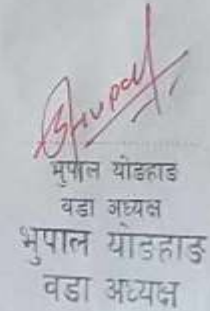 Bhupal
भुपाल योङहाङ
वडा अध्यक्ष
भुपाल योङहाङ
वडा अध्यक्ष